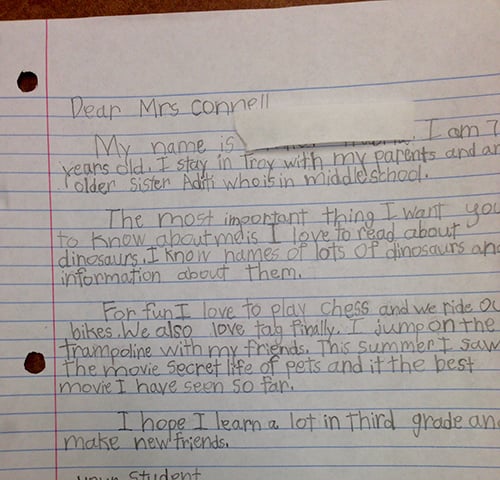 Dear Mrs Connell
My name is I am 7
years old. I stay in Troy with my parents and an
older sister Aditi who is in middle school.
The most important thing I want you
to know about me is I love to read about
dinosaurs. I know names of lots of dinosaurs and
information about them.
For fun I love to play chess and we ride ou
bikes. We also love tag finally. I jump on the
trampoline with my friends. This summer I saw
the movie secret life of pets and it the best
movie I have seen so far.
I hope I learn a lot in third grade an
make new friends.
your student